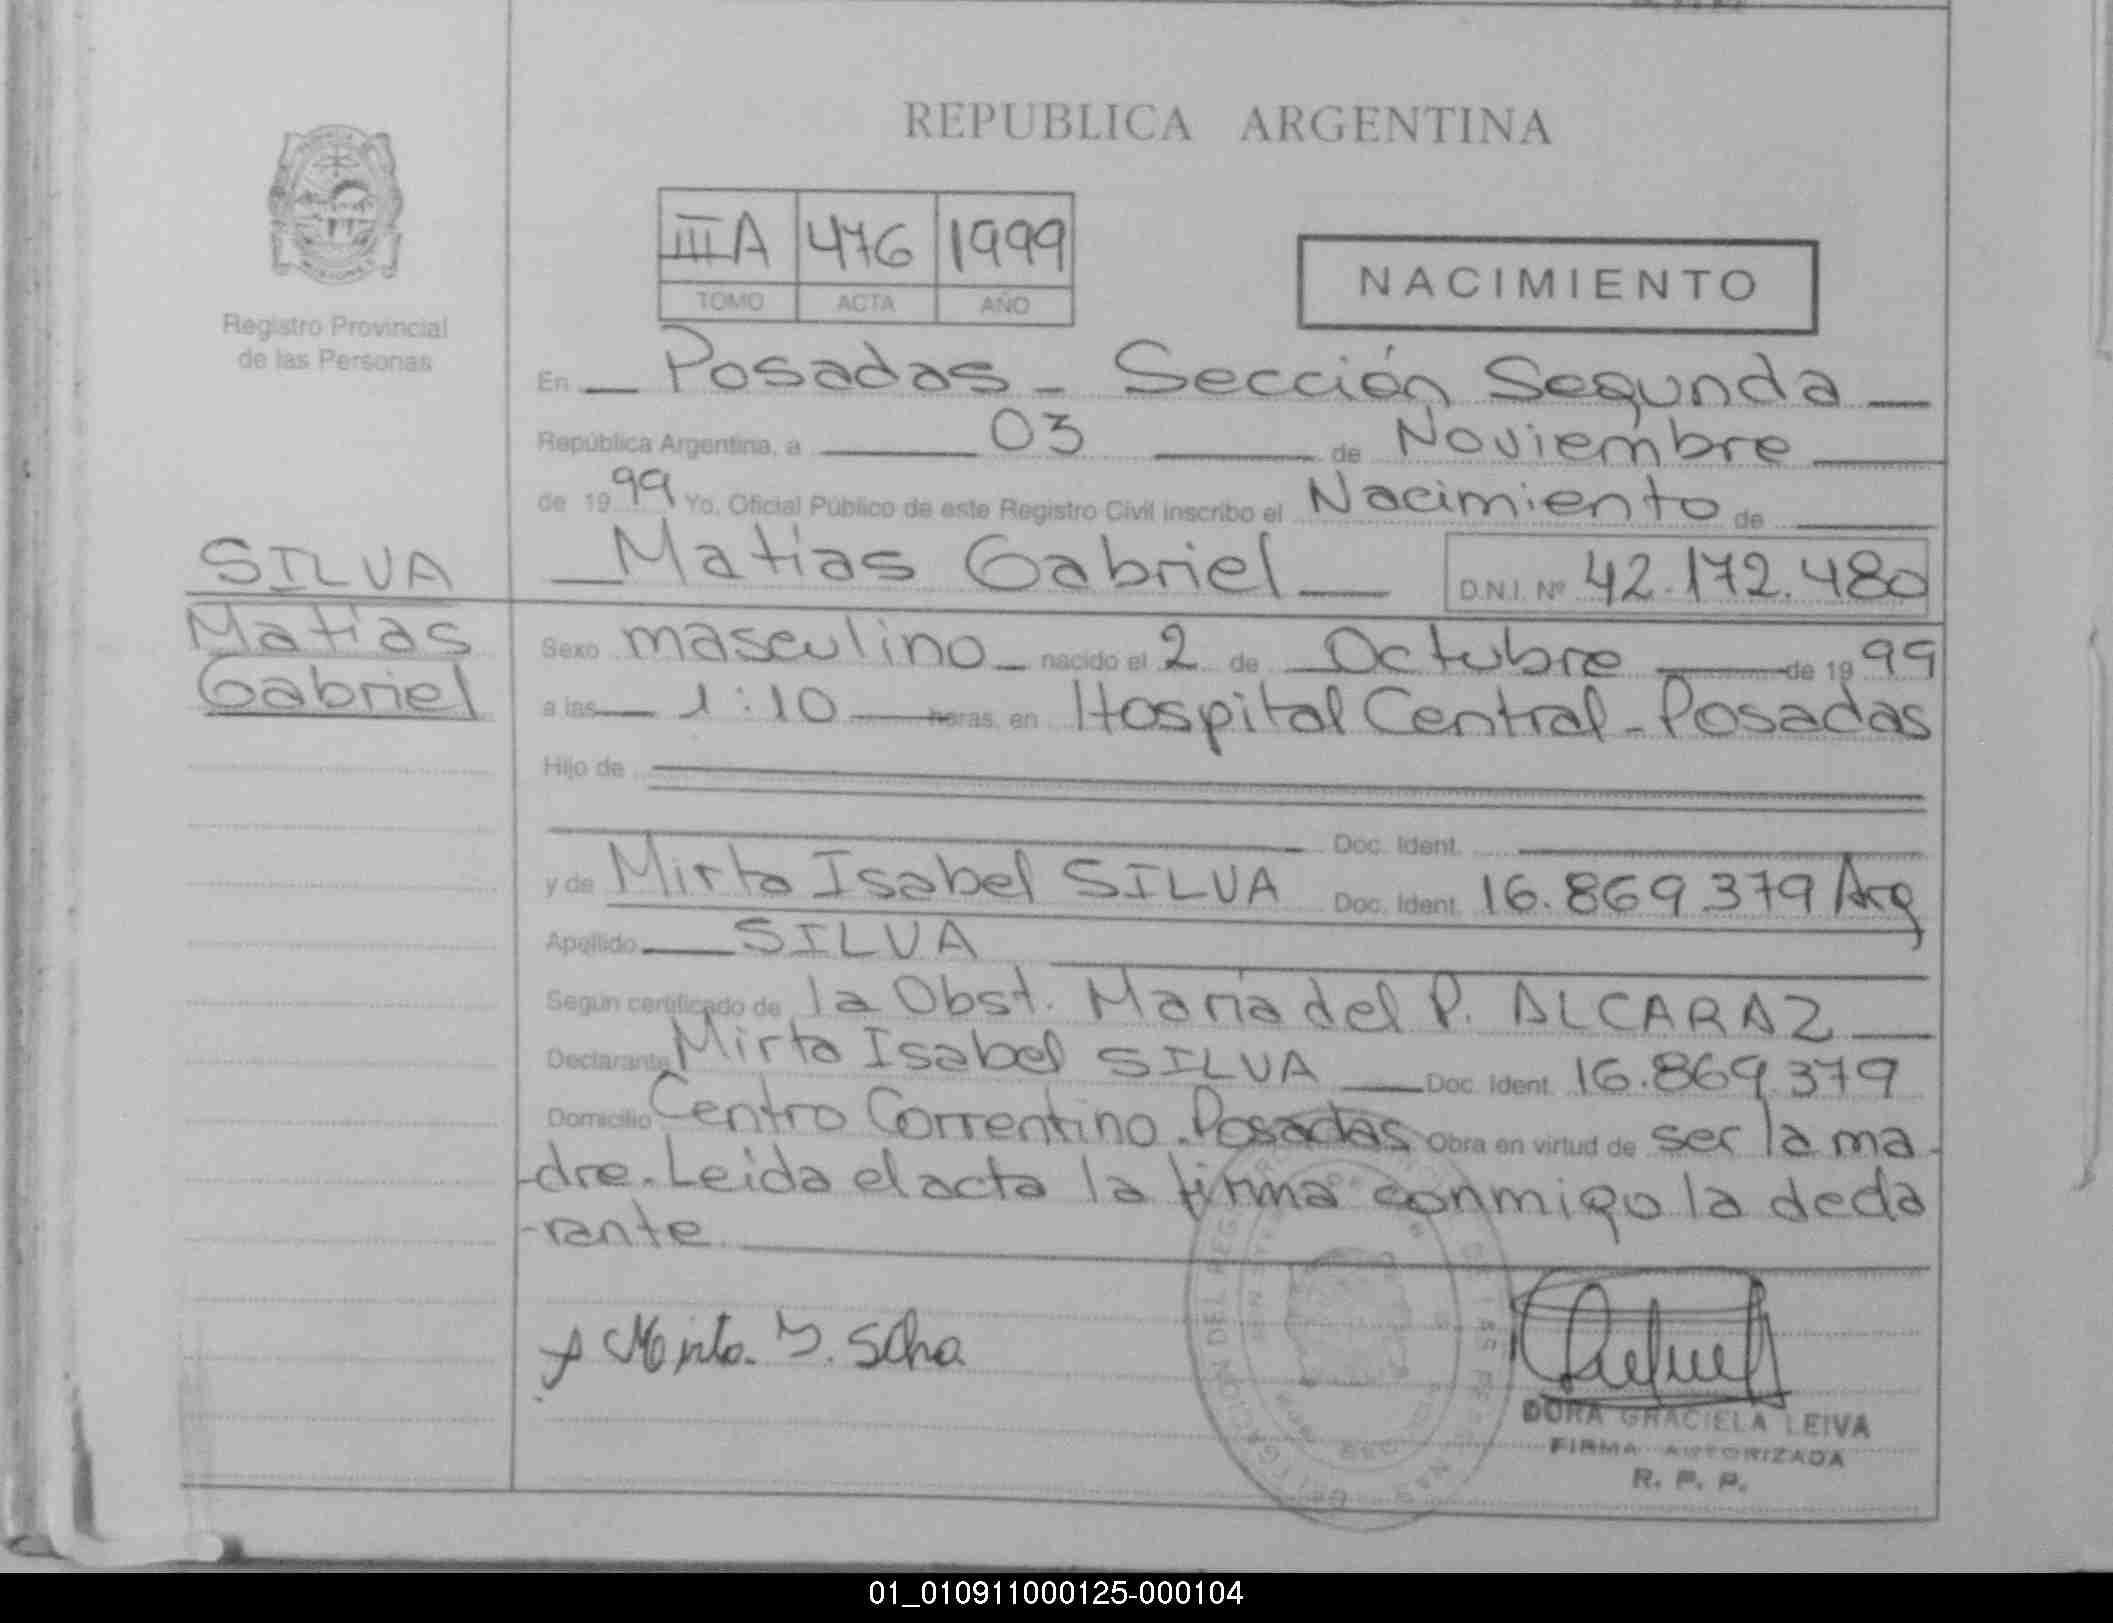 REPUBLICA ARGENTINA
IIIA 476 1999
TOMO ACTA AÑO
NACIMIENTO
Registro Provincial
de las Personas
En Posadas - Sección Segunda
República Argentina, a 03 de Noviembre
de 1999 Yo, Oficial Público de este Registro Civil inscribo el Nacimiento de
Matias Gabriel D.N.I. Nº 42.172.480
SILVA
Matias
Gabriel
Sexo masculino nacido el 2 de Octubre de 1999
a las 1:10 horas, en Hospital Central - Posadas
Hijo de
Doc. Ident.
y de Mirta Isabel SILVA Doc. Ident. 16.869.379 Arg
Apellido SILVA
Según certificado de la Obst. María del P. ALCARAZ
Declarante Mirta Isabel SILVA Doc. Ident. 16.869.379
Domicilio Centro Correntino. Posadas Obra en virtud de ser la ma-
-dre. Leida el acta la firma conmigo la decla
-rante
Mirta. I. Silva
DORA GRACIELA LEIVA
FIRMA AUTORIZADA
R. P. P.
01_010911000125-000104